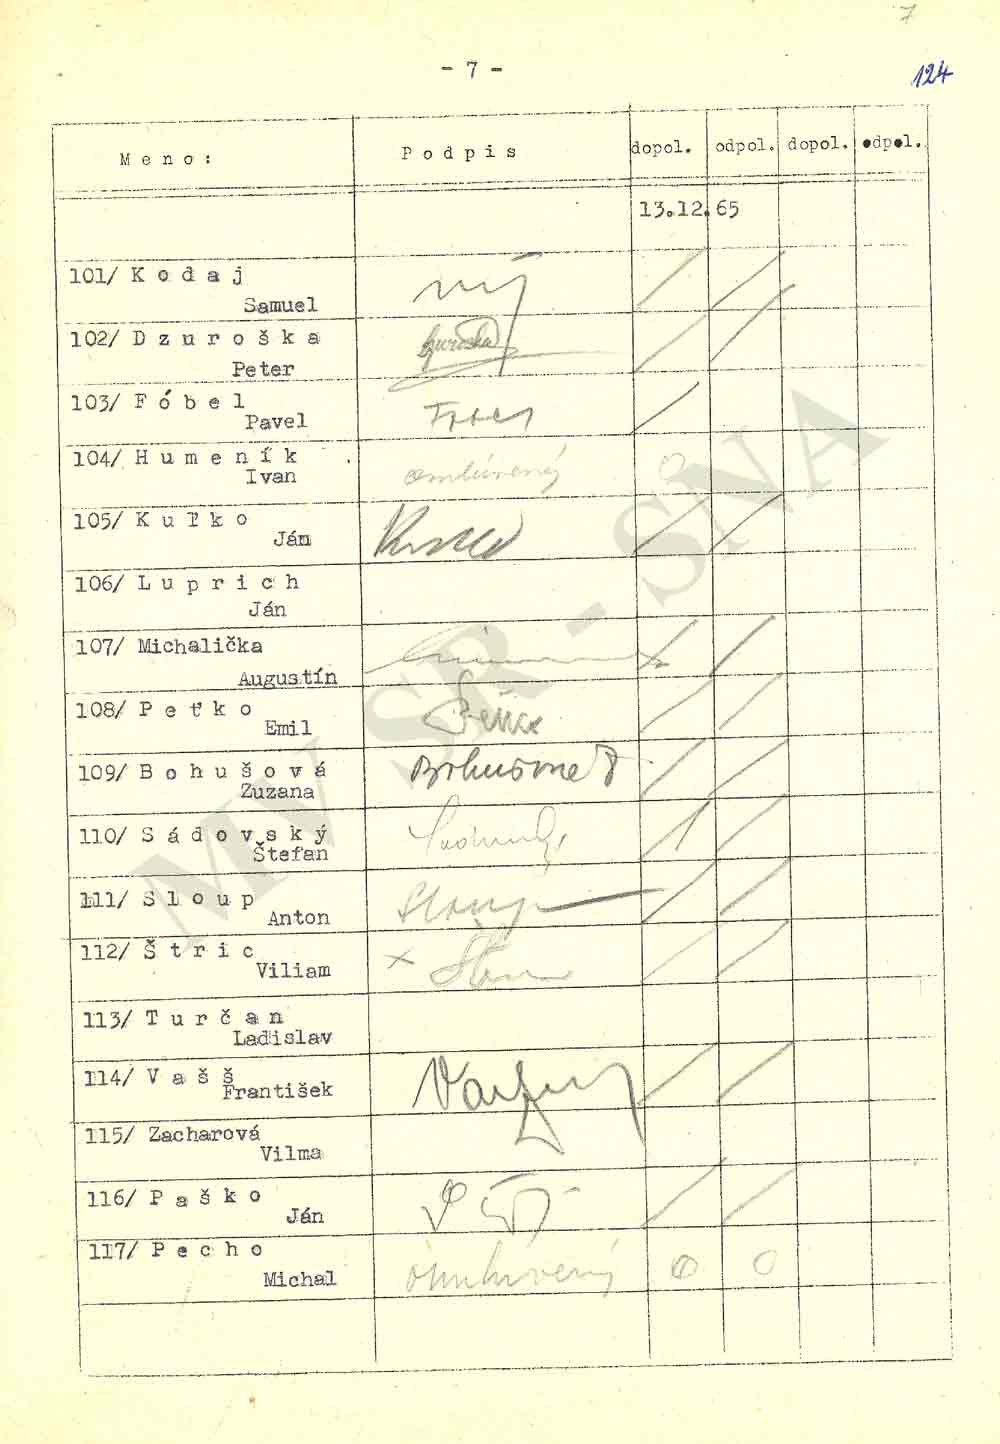 7
- 7 -
124
Meno: Podpis dopol. odpol. dopol. odpol.
13.12.65
101/ Kodaj
Samuel
102/ Dzuroška
Peter
103/ Fóbel
Pavel
104/ Humeník
Ivan omluvený O
105/ Kuľko
Ján
106/ Luprich
Ján
107/ Michalička
Augustín
108/ Peťko
Emil
109/ Bohušová
Zuzana
110/ Sádovský
Štefan
111/ Sloup Sloup
Anton
112/ Štric
Viliam x
113/ Turčan
Ladislav
114/ Vašš
František
115/ Zacharová
Vilma
116/ Paško
Ján
117/ Pecho
Michal omluvený O O
MV SR - SNA